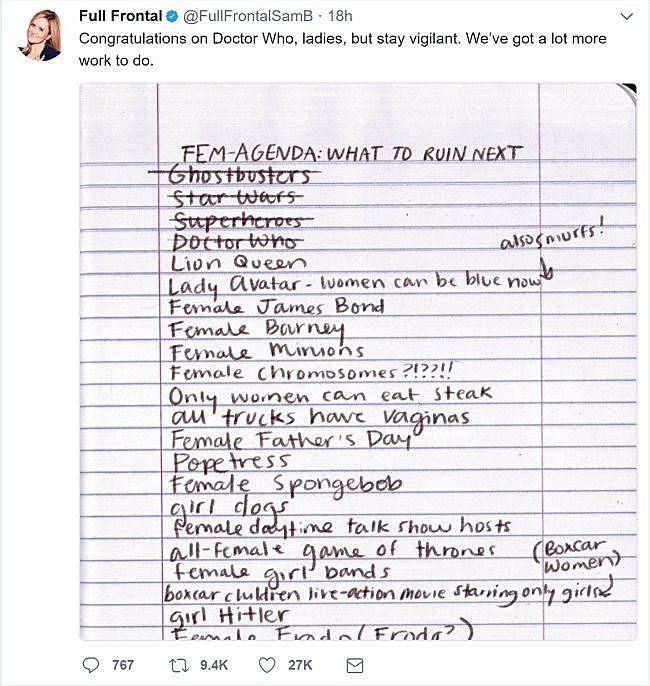 Full Frontal @FullFrontalSamB · 18h
Congratulations on Doctor Who, ladies, but stay vigilant. We've got a lot more
work to do.
FEM-AGENDA: WHAT TO RUIN NEXT
Ghostbusters
Star Wars
Superheroes
Doctor Who
also smurfs!
Lion Queen
Lady Avatar - women can be blue now
Female James Bond
Female Barney
Female Minions
Female chromosomes ?!??!!
Only women can eat steak
all trucks have vaginas
Female Father's Day
Popetress
Female Spongebob
girl dogs
female daytime talk show hosts
all-female game of thrones (Boxcar
female girl bands Women)
boxcar children live-action movie starring only girls
girl Hitler
Female Frodo (Froda?)
767 9.4K 27K